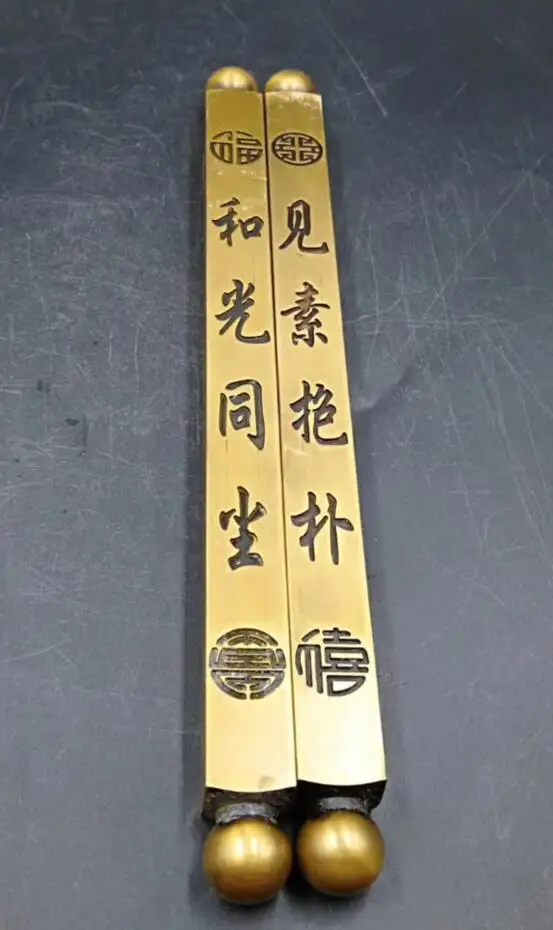 见素抱朴
禧
福
和光同尘
寿